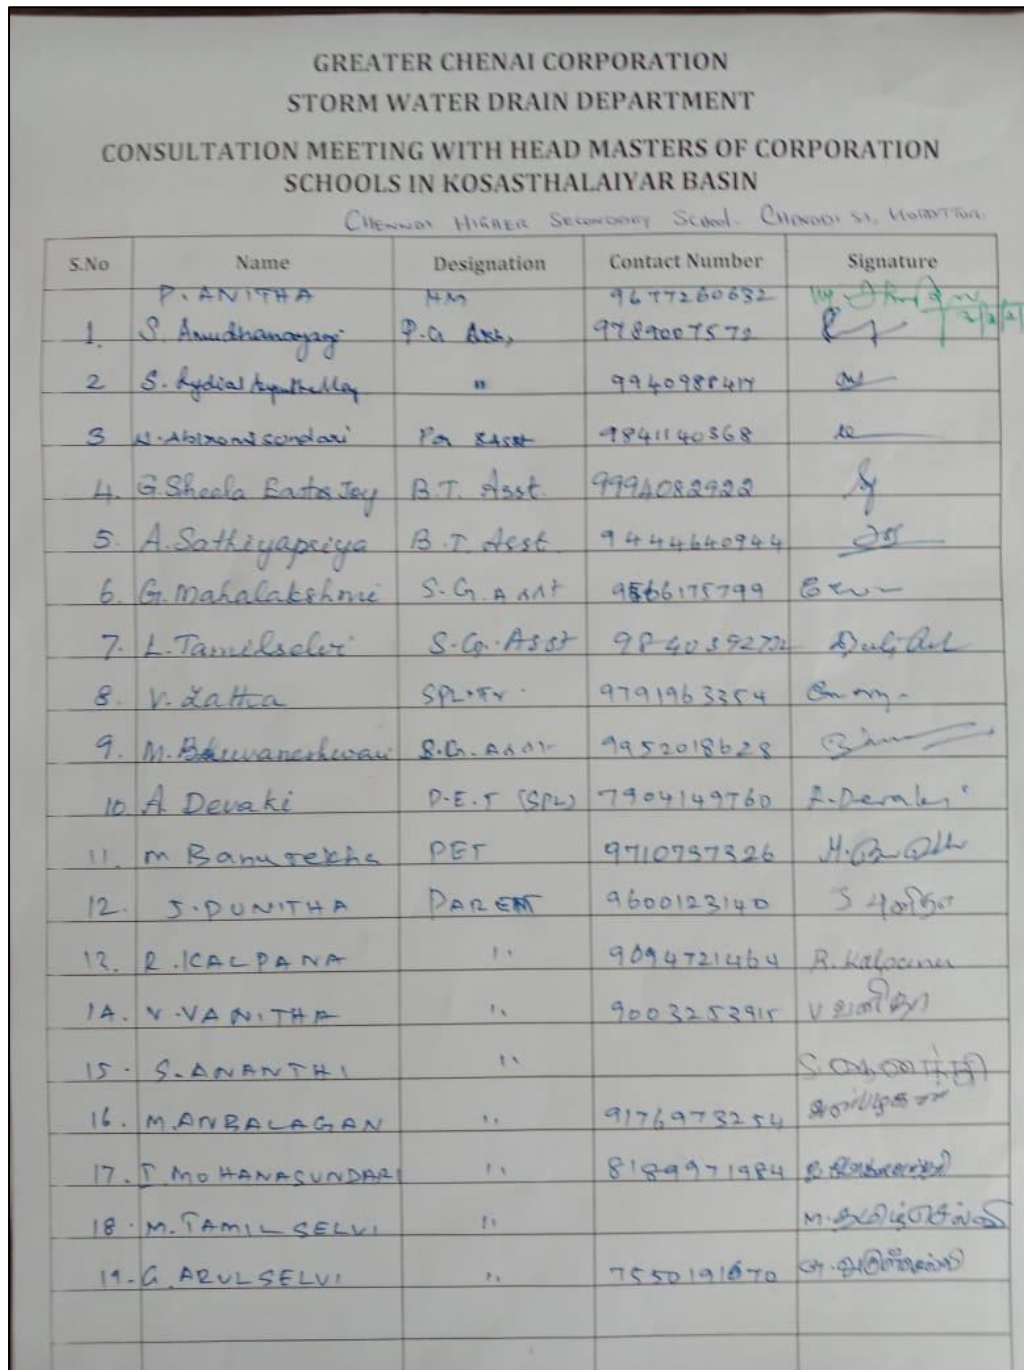 GREATER CHENAI CORPORATION
STORM WATER DRAIN DEPARTMENT
CONSULTATION MEETING WITH HEAD MASTERS OF CORPORATION
SCHOOLS IN KOSASTHALAIYAR BASIN
CHENNAI HIGHER SECONDARY School.
S.No Name Designation Contact Number Signature
P. ANITHA HM 9677260632
1. S. P.G Asst, 9789007572
2 S. Lydia " 9940988417
3 N. Abiromisundari 9841140368
4. G. Sheela Joy B.T. Asst. 9994082922
5. A. Sathiyapriya B.T. Asst 9444640944
6. G. Mahalakshmi S.G. Asst 9566175799
7. L. Tamilselvi S.G. Asst
8. V. Latha 9791963354
9. M. Bhuvaneshwari S.G. Asst 9952018628
10 A Devaki P.E.T (SPL) 7904149760 A. Devaki
11. M Banurekha PET 9710737326
12. J. PUNITHA PARENT 9600123140 J புனிதா
13. R. KALPANA " 9094721464 R. Kalpana
14. V. VANITHA " 9003253915 V வனிதா
15. S. ANANTHI " S.
16. M. ANBALAGAN " 9176973254 அன்பழகன்
17. I. MOHANASUNDARI " 8189971984
18. M. TAMIL SELVI " M. தமிழ்செல்வி
19. G. ARUL SELVI " 7550191670